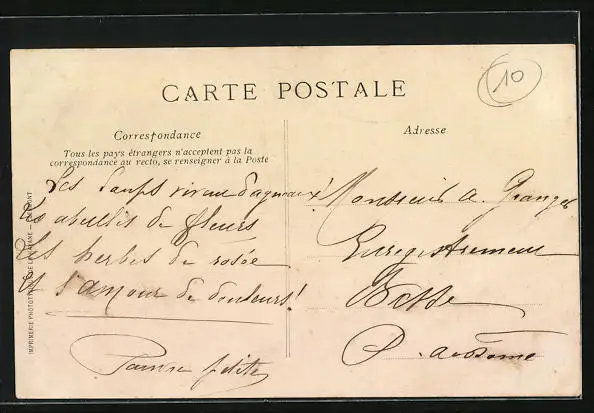 CARTE POSTALE
10
Correspondance
Tous les pays étrangers n'acceptent pas la
correspondance au recto, se renseigner à la Poste
Les loups vivent d'agneaux!
Les abeilles de fleurs
Les herbes de rosée
Et l'amour de douleurs!
Pauvre petite
Adresse
Monsieur A. Granger
Enregistrement
Besse
P. de Dôme
IMPRIMERIE PHOTOTYPIE